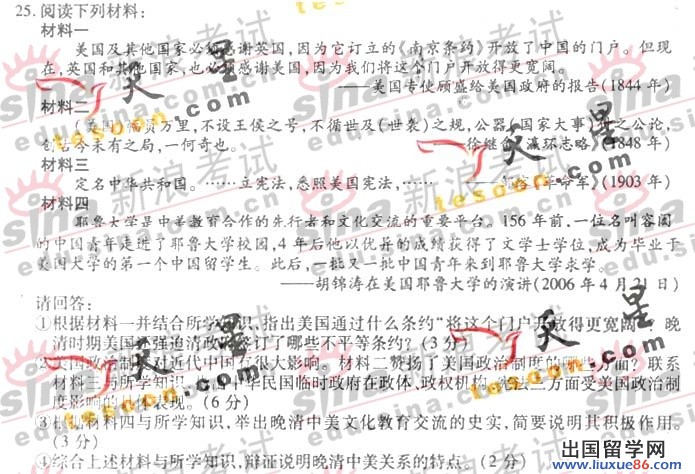 25. 阅读下列材料：
材料一
美国及其他国家必须感谢英国，因为它订立的《南京条约》开放了中国的门户。但现
在，英国和其他国家，也必须感谢美国，因为我们将这个门户开放得更宽阔。
——美国专使顾盛给美国政府的报告(1844 年)
材料二
万里，不设王侯之号，不循世及(世袭)之规，公器(国家大事)之公论，
创古今未有之局，一何奇也。
瀛环志略》(1848 年)
材料三
定名中华共和国。……立宪法，悉照美国宪法，……
革命军》(1903 年)
材料四
耶鲁大学是中美教育合作的先行者和文化交流的重要平台。156 年前，一位名叫容闳
的中国青年走进了耶鲁大学校园，4 年后他以优异的成绩获得了文学士学位，成为毕业于
美国大学的第一个中国留学生。此后，一批又一批中国青年来到耶鲁大学求学。
——胡锦涛在美国耶鲁大学的演讲(2006 年 4 月 21 日)
请回答：
①根据材料一并结合所学知识，指出美国通过什么条约“将这个门户开放得更宽阔”，晚
清时期美国还强迫清政府签订了哪些不平等条约？(3 分)
②美国政治制度对近代中国有很大影响。材料二赞扬了美国政治制度的哪些方面？联系
材料三与所学知识，中华民国临时政府在政体、政权机构、宪法三方面受美国政治制
度影响的具体表现。(6 分)
③根据材料四与所学知识，举出晚清中美文化教育交流的史实，简要说明其积极作用。
(3 分)
④综合上述材料与所学知识，辩证说明晚清中美关系的特点。(2 分)
新浪考试
sina
edu.sina.com.cn
天星
tesoon.com
出国留学网
www.liuxue86.com